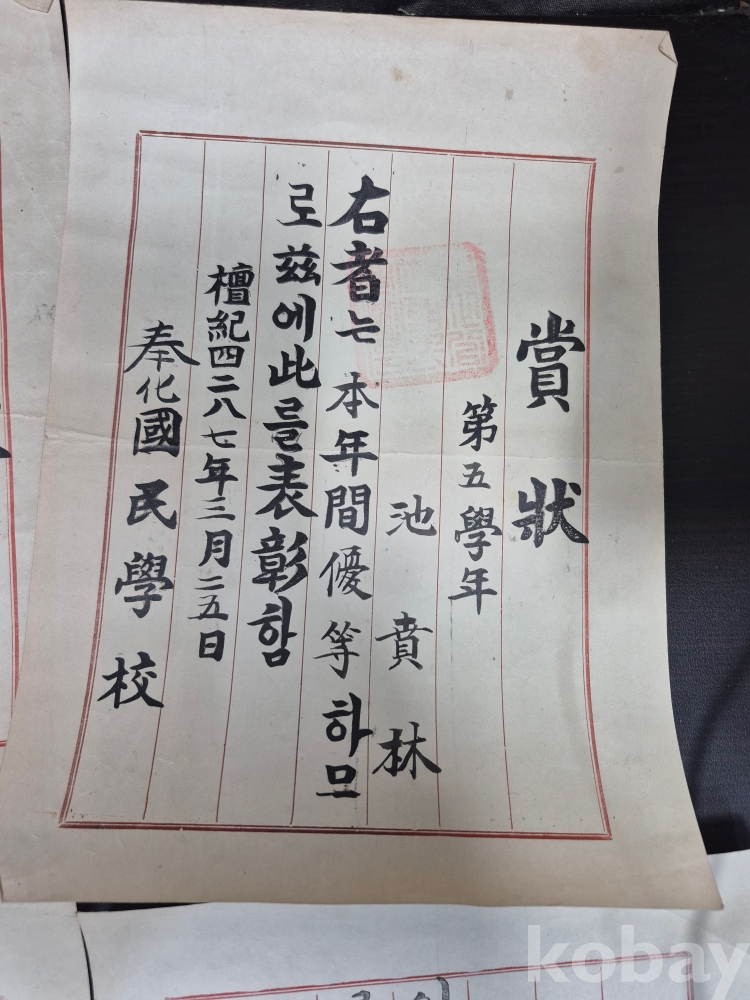 賞狀
第五學年
池賁林
右者는 本年間優等하므
로玆에此를表彰함
檀紀四二八七年三月二五日
奉化國民學校
kobay